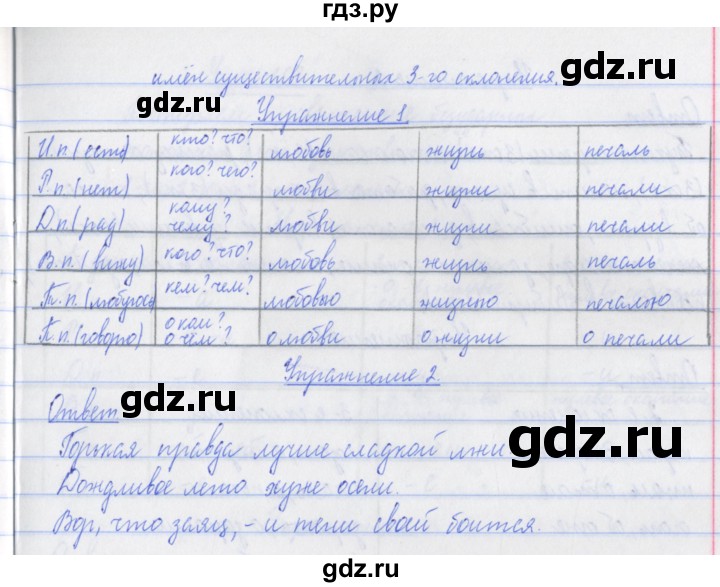 гдз.ру
имён существительных 3-го склонения.
gdz.ru gdz.ru
Упражнение 1.
И.п. (есть) кто? что? любовь жизнь печаль
Р.п. (нет) кого? чего? любви жизни печали
Д.п. (рад) кому? чему? любви жизни печали
В.п. (вижу) кого? что? любовь жизнь печаль
Т.п. (любуюсь) кем? чем? любовью жизнью печалью
П.п. (говорю) о ком? о чём? о любви о жизни о печали
gdz.ru gdz.ru
Упражнение 2.
gdz.ru
Ответ
Горькая правда лучше сладкой лжи
gdz.ru
Дождливое лето хуже осени.
Вор, что заяц, - и тени своей боится.
gdz.ru gdz.ru